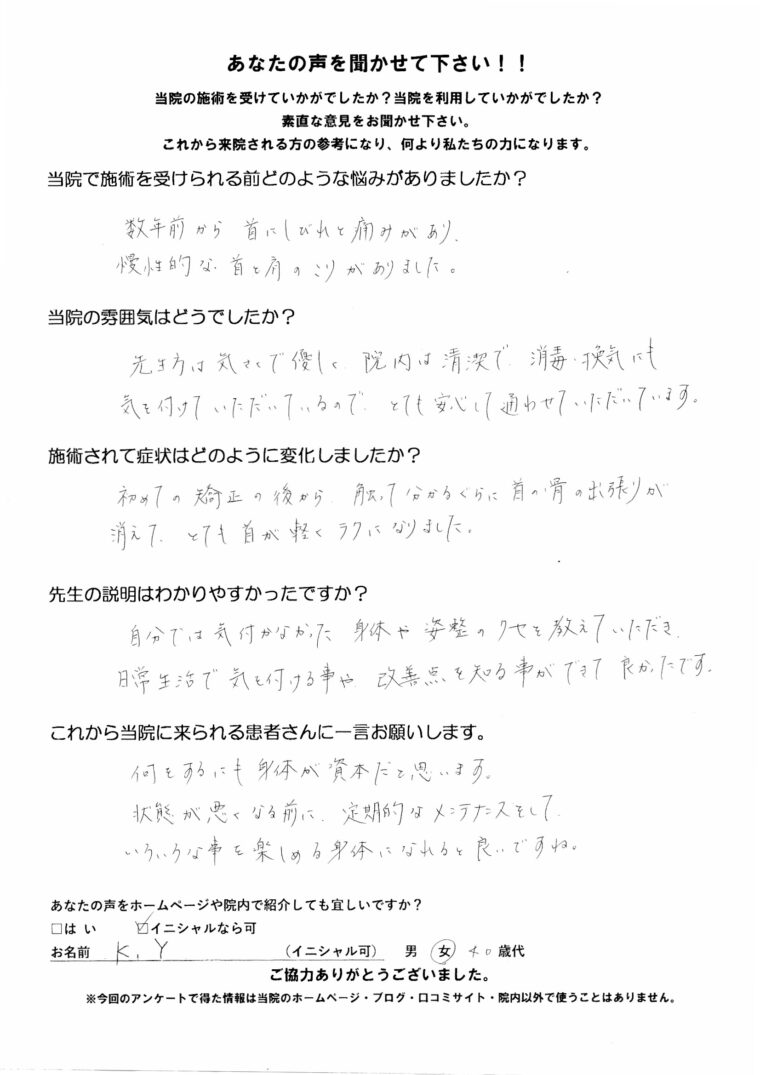 あなたの声を聞かせて下さい！！
当院の施術を受けていかがでしたか？当院を利用していかがでしたか？
素直な意見をお聞かせ下さい。
これから来院される方の参考になり、何より私たちの力になります。
当院で施術を受けられる前どのような悩みがありましたか？
数年前から 首にしびれと痛みがあり、
慢性的な 首と肩のこりがありました。
当院の雰囲気はどうでしたか？
先生方は気さくで優しく、院内は清潔で、消毒・換気にも
気を付けていただいているので、とても安心して通わせていただいています。
施術されて症状はどのように変化しましたか？
初めての矯正の後から、触って分かるぐらに首の骨の出張りが
消えて、とても首が軽くラクになりました。
先生の説明はわかりやすかったですか？
自分では気付かなかった 身体や姿整のクセを教えていただき、
日常生活で気を付ける事や、改善点を知る事ができて良かったです。
これから当院に来られる患者さんに一言お願いします。
何をするにも身体が資本だと思います。
状態が悪くなる前に、定期的なメンテナンスをして、
いろいろな事を楽しめる身体になれると良いですね。
あなたの声をホームページや院内で紹介しても宜しいですか？
□はい ☑イニシャルなら可
お名前 K.Y （イニシャル可） 男 女 40歳代
ご協力ありがとうございました。
※今回のアンケートで得た情報は当院のホームページ・ブログ・口コミサイト・院内以外で使うことはありません。